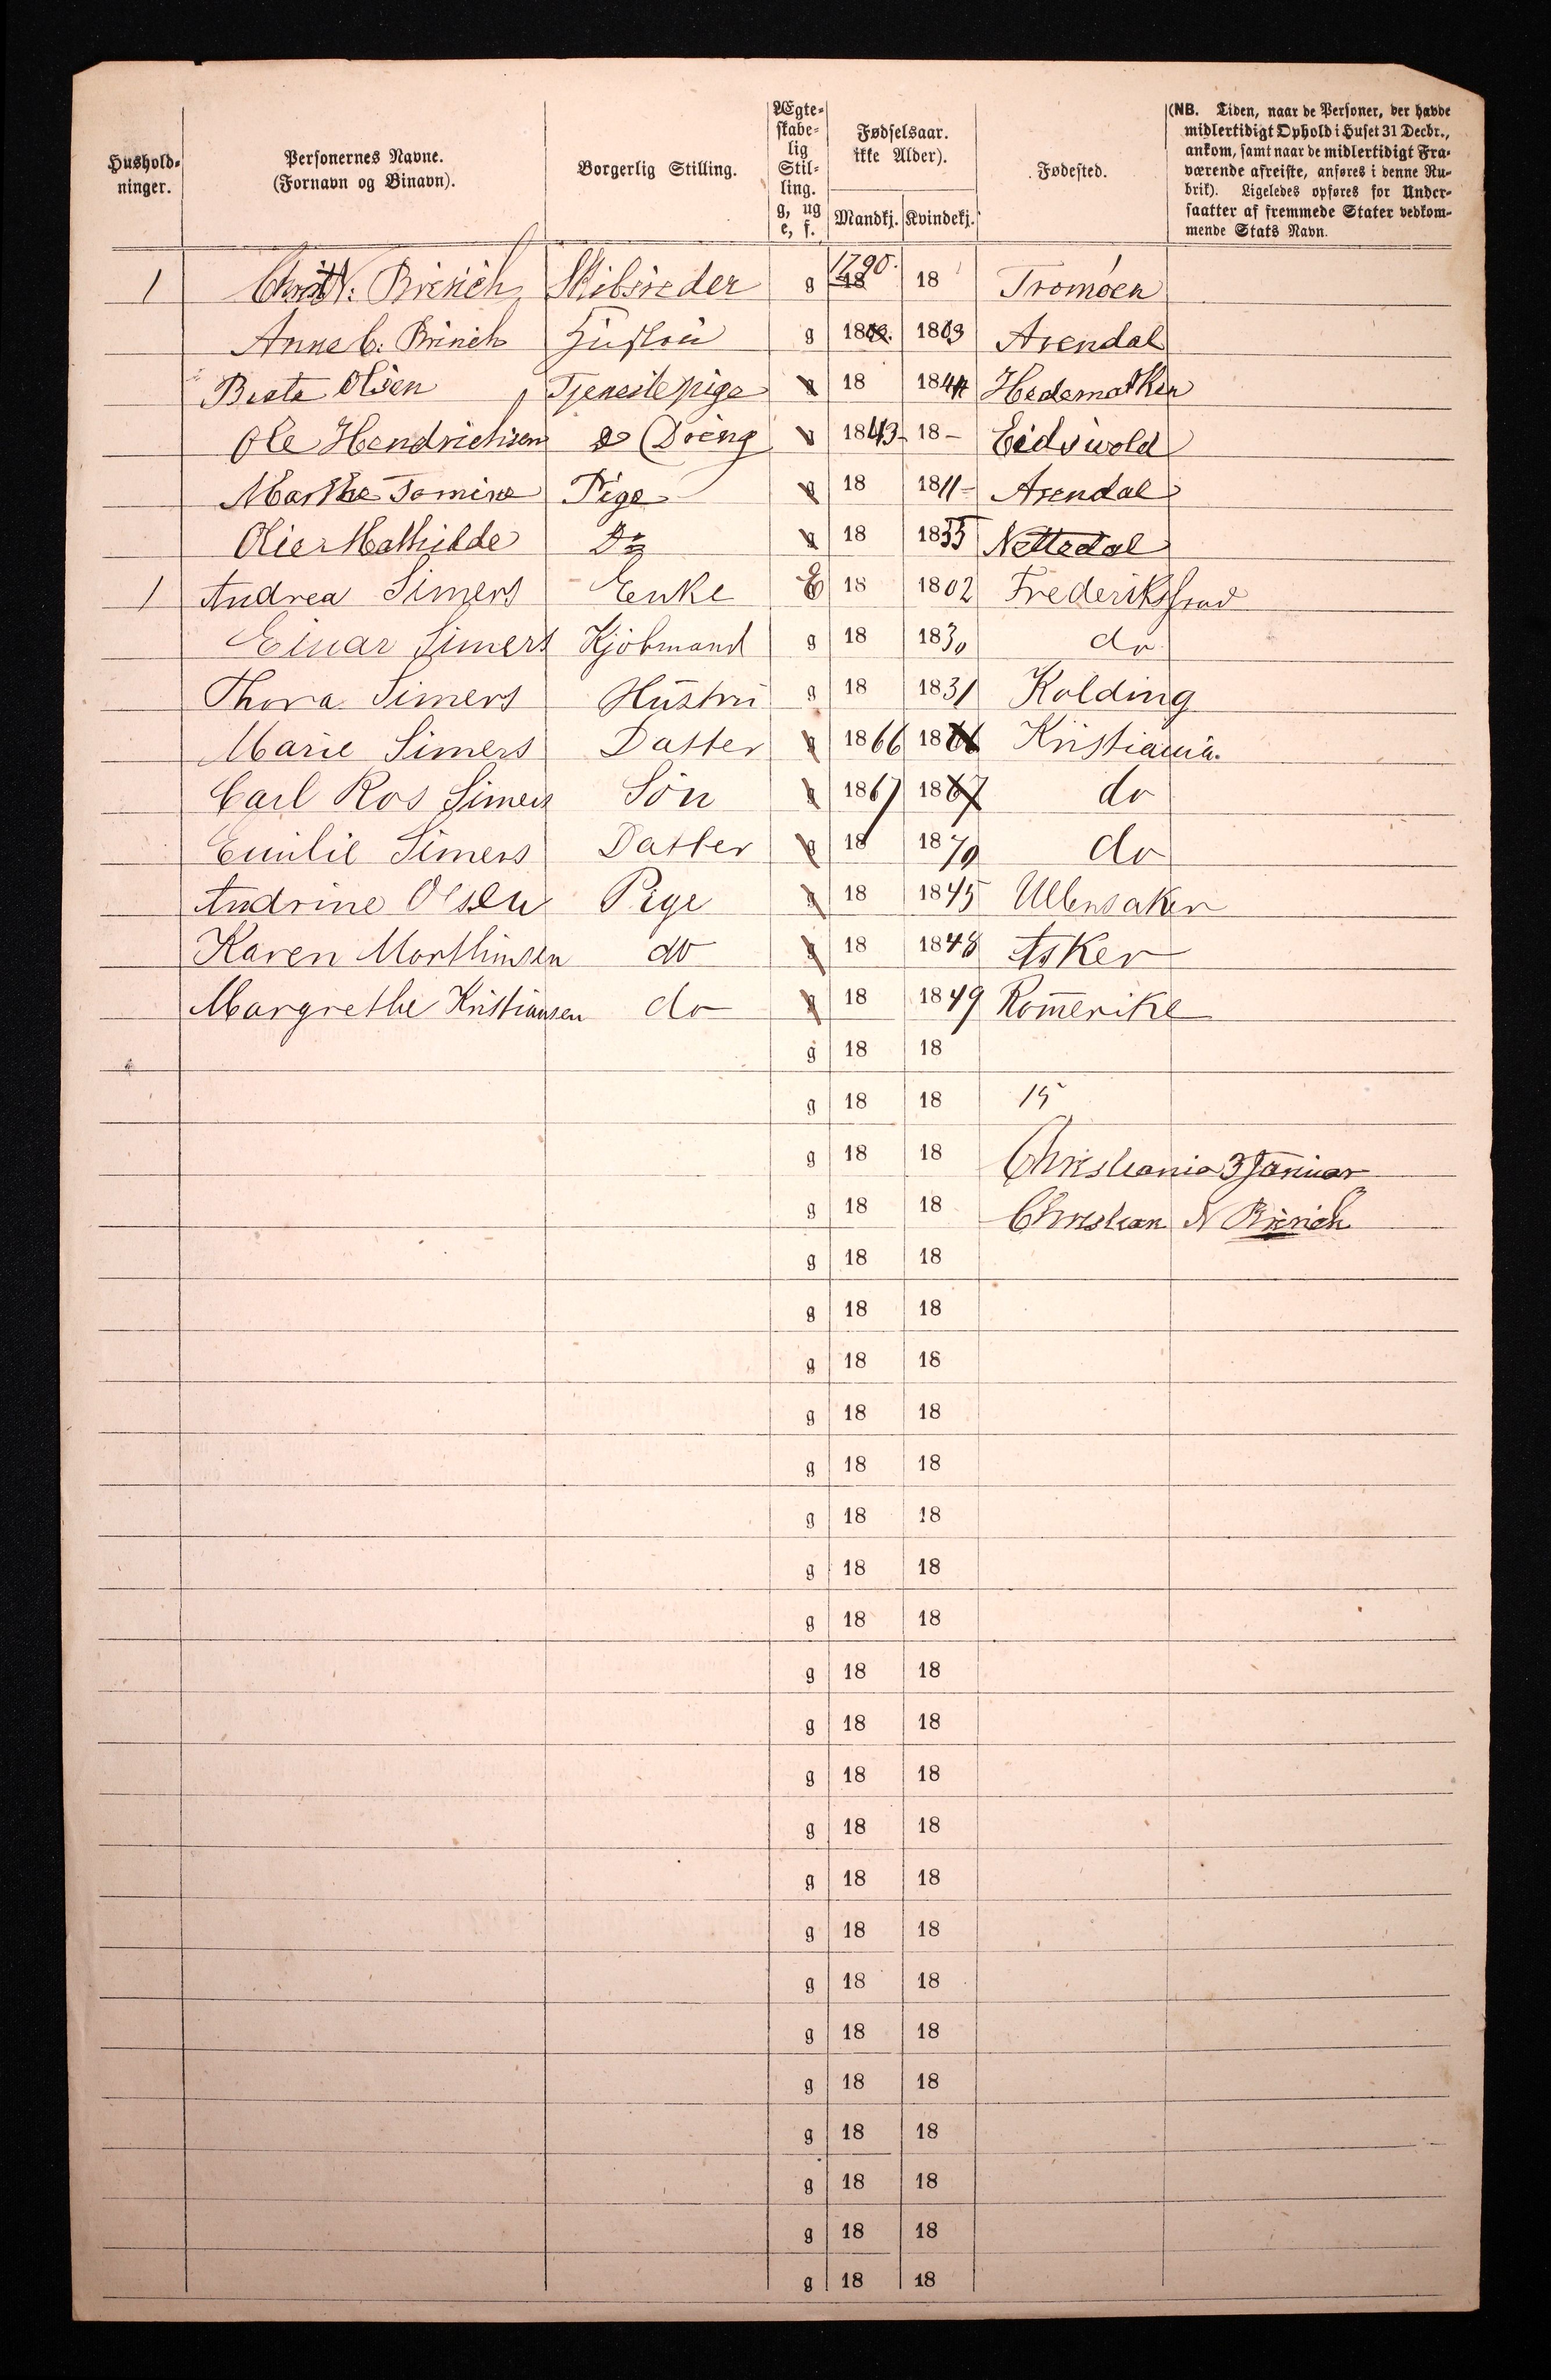 Hushold-
ninger.
Personernes Navne.
(Fornavn og Binavn).
Borgerlig Stilling.
Ægte-
skabe-
lig
Stil-
ling.
g, ug
e, f.
Fødselsaar.
ikke Alder).
Mandkj. Kvindekj.
Fødested.
(NB. Tiden, naar de Personer, der havde
midlertidigt Ophold i Huset 31 Decbr.,
ankom, samt naar de midlertidigt Fra-
værende afreiste, anføres i denne Ru-
brik). Ligeledes opføres for Under-
saatter af fremmede Stater vedkom-
mende Stats Navn.
1 N: Brinch Skibsreder g 1790. 18 18 Tromøen
Anne C. Brinch Hustru g 18 1803 Arendal
Beate Olsen Tjenestepige g 18 1844 Hedemarken
Ole Hendrichsen Dreng 1843 - 18 - Eidsvold
Marthe Tomine Pige g 18 1811 - Arendal
Mathilde Do g 18 1835 Nittedal
1 Andrea Simers Enke E 18 1802 Frederikstad
Einar Simers Kjøbmand g 18 1830 do
Thora Simers Hustru g 18 1831 Kolding
Marie Simers Datter g 1866 1866 Kristiania.
Carl Ros Simers Søn g 1867 1867 do
Emilie Simers Datter g 18 1870 do
Andrine Olsen Pige g 18 1845 Ullensaker
Karen Morthinsen do g 18 1848 Asker
Margrethe Kristiansen do g 18 1849 Romerike
g 18 18
g 18 18 15
g 18 18 Christiania 3 Januar
g 18 18 Christian N Brinch
g 18 18
g 18 18
g 18 18
g 18 18
g 18 18
g 18 18
g 18 18
g 18 18
g 18 18
g 18 18
g 18 18
g 18 18
g 18 18
g 18 18
g 18 18
g 18 18
g 18 18
g 18 18
g 18 18
g 18 18